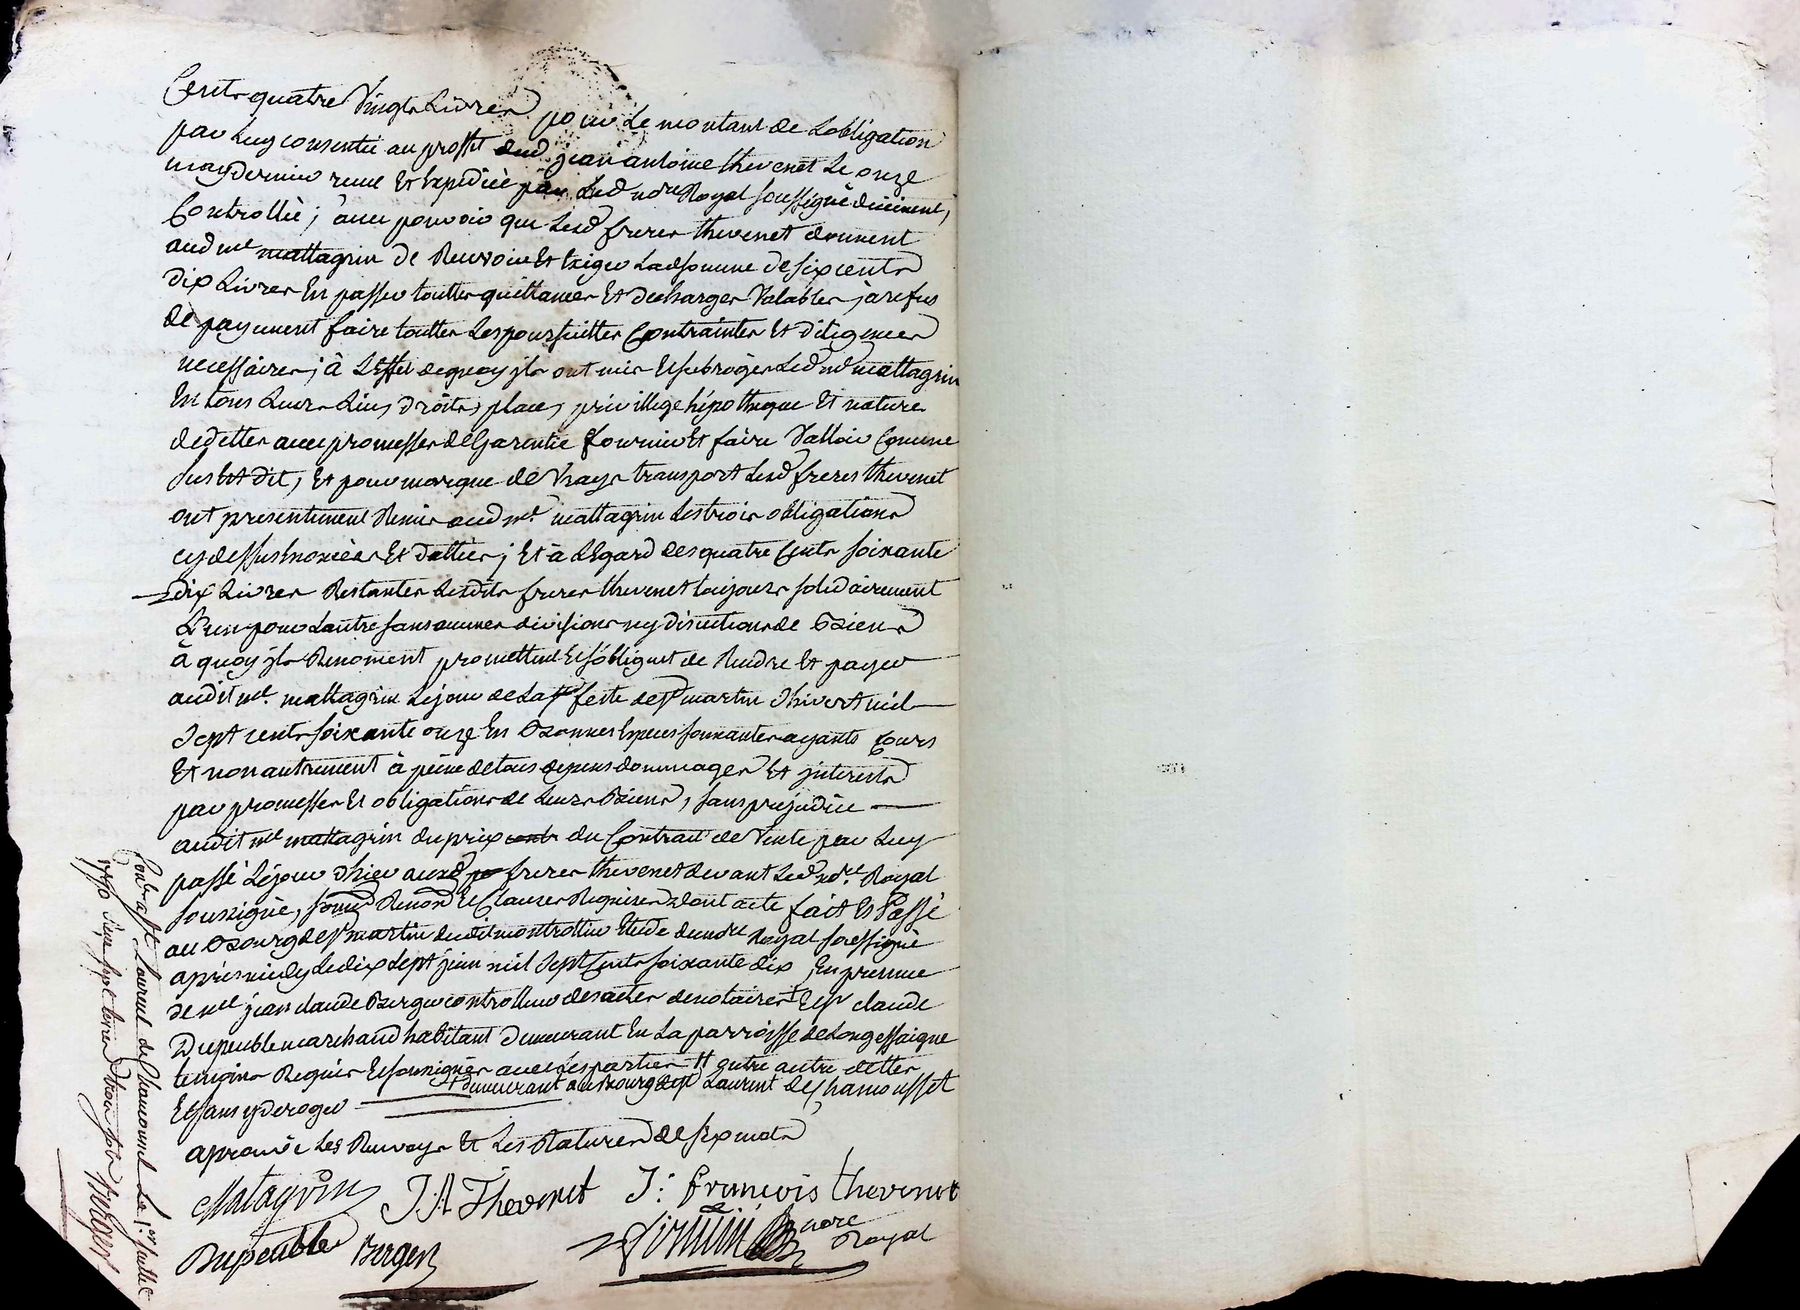 Cents quatre Vingts Livres pour Le montant de Lobligation
par Luy consentie au proffit dud jean antoine thevenet Le onze
may dernier receu Et Expediée par Led no.re Royal soussigné düement
Controllée; avec pouvoir que Lesd freres thevenet donnent
aud me mattagrin de Recevoir Et Exiger Lad somme de six cents
dix Livres En passer touttes quittances Et decharges Valables, à refus
de payement faire touttes Les poursuittes Contraintes Et diligences
necessaires; à L'Effet dequoy jls ont mis Et subrogés Led me mattagrin
En tous Leurs Lieu, droits, place, privillege hépotheque Et nature
de dettes avec promesses de Garentie fournir Et faire Valloir Comme
sus Est dit, Et pour marque de Vrays transport Lesd freres thevenet
ont presentement Remis aud me mattagrin Les trois obligations
cy dessus Enoncées Et dattées; Et à L'Egard des quatre Cents soixante
dix Livres Restantes Lesdits freres thevenet toujours solidairement
L'un pour Lautre sans aucunes divisions ny discutions de Biens
à quoy jls Renoncent promettent Et s'obligent de Rendre Et payer
audit me mattagrin Le jour de La feste de st martin d'hivert mil
sept cents soixante onze En Bonnes Especes sonnantes ayants Cours
Et non autrement à peine de tous depens dommages Et jnterests
par promesses Et obligations de Leurs Biens, sans prejudice
audit me mattagrin du prix du Contrait de Vente par Luy
passé Le jour d'hier auxd freres thevenet devant Led no.re Royal
soussigné, soumd Renond Et Clauses Requises dont acte fait Et Passé
au Bourg de st martin Etude dud no.re Royal soussigné
après midy Le dix sept juin mil sept Cents soixante dix, En presence
de me jean claude Berger controlleur des actes de notaires Et sr claude
Dupeuble marchand habitant demeurant En La parroisse de Longessaigne
temoins Requis Et soussignés avec Les parties # entre autre dettes
demeurant au Bourg de st Laurent de Chamousset
Et sans y deroger
aprouvé Les Renvoys Et Les Ratures de six mots
Matagrin J A Thevenet J: françois thevenet
Dupeuble Berger nore Royal
Cont.é a st Laurent de Chamousset Le 1er juillet
1770 Berger